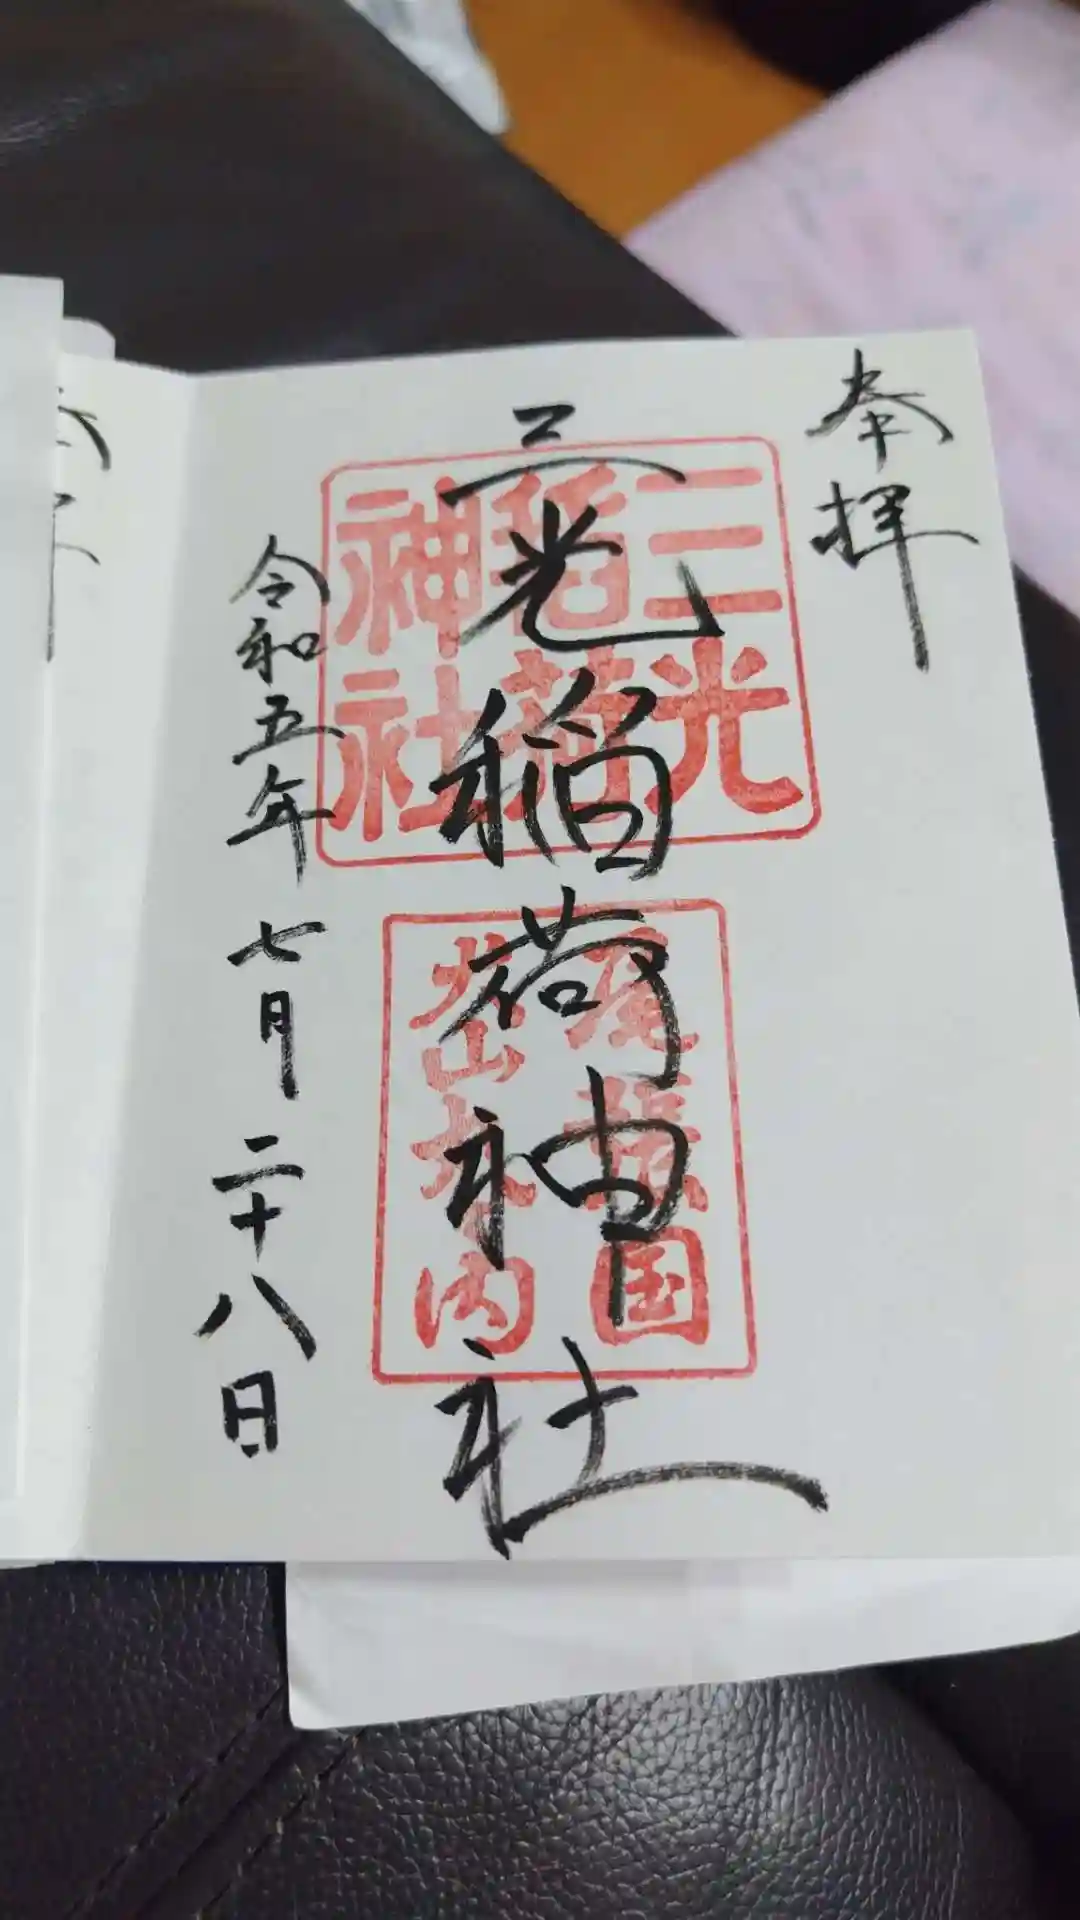 奉拝
三光稲荷神社
令和五年七月二十八日
三光
稲荷
神社
尾張国
犬山城内